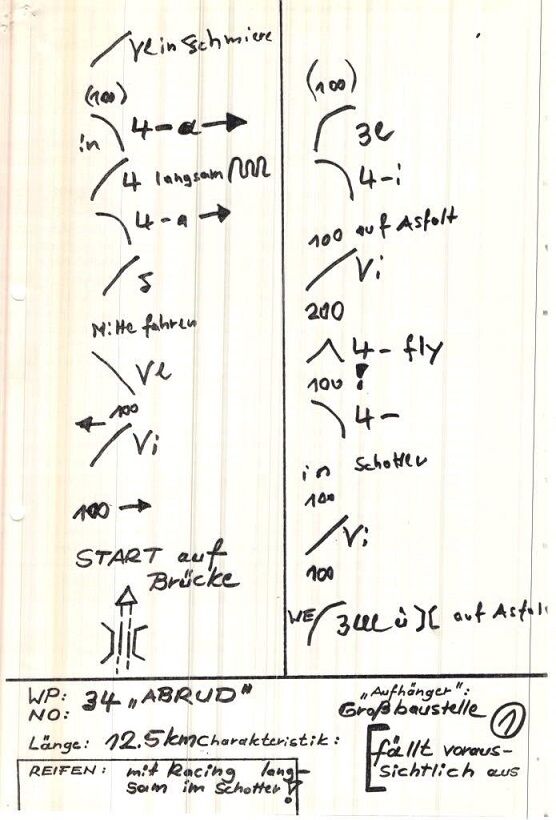 Ve in Schmiere
(100)
4-a →
in
4 langsam
4-a →
5
Mitte fahren
Ve
← 100
Vi
100 →
START auf
Brücke
(100)
3e
4-i
100 auf Asfalt
Vi
200
4- fly
100 !
4-
in Schotter
100
Vi
100
WE 3eee ü )( auf Asfal
WP: 34 „ABRUD"
NO:
Länge: 12.5km Charakteristik:
REIFEN: mit Racing lang-
sam im Schotter!
„Aufhänger":
Großbaustelle 1
fällt voraus-
sichtlich aus